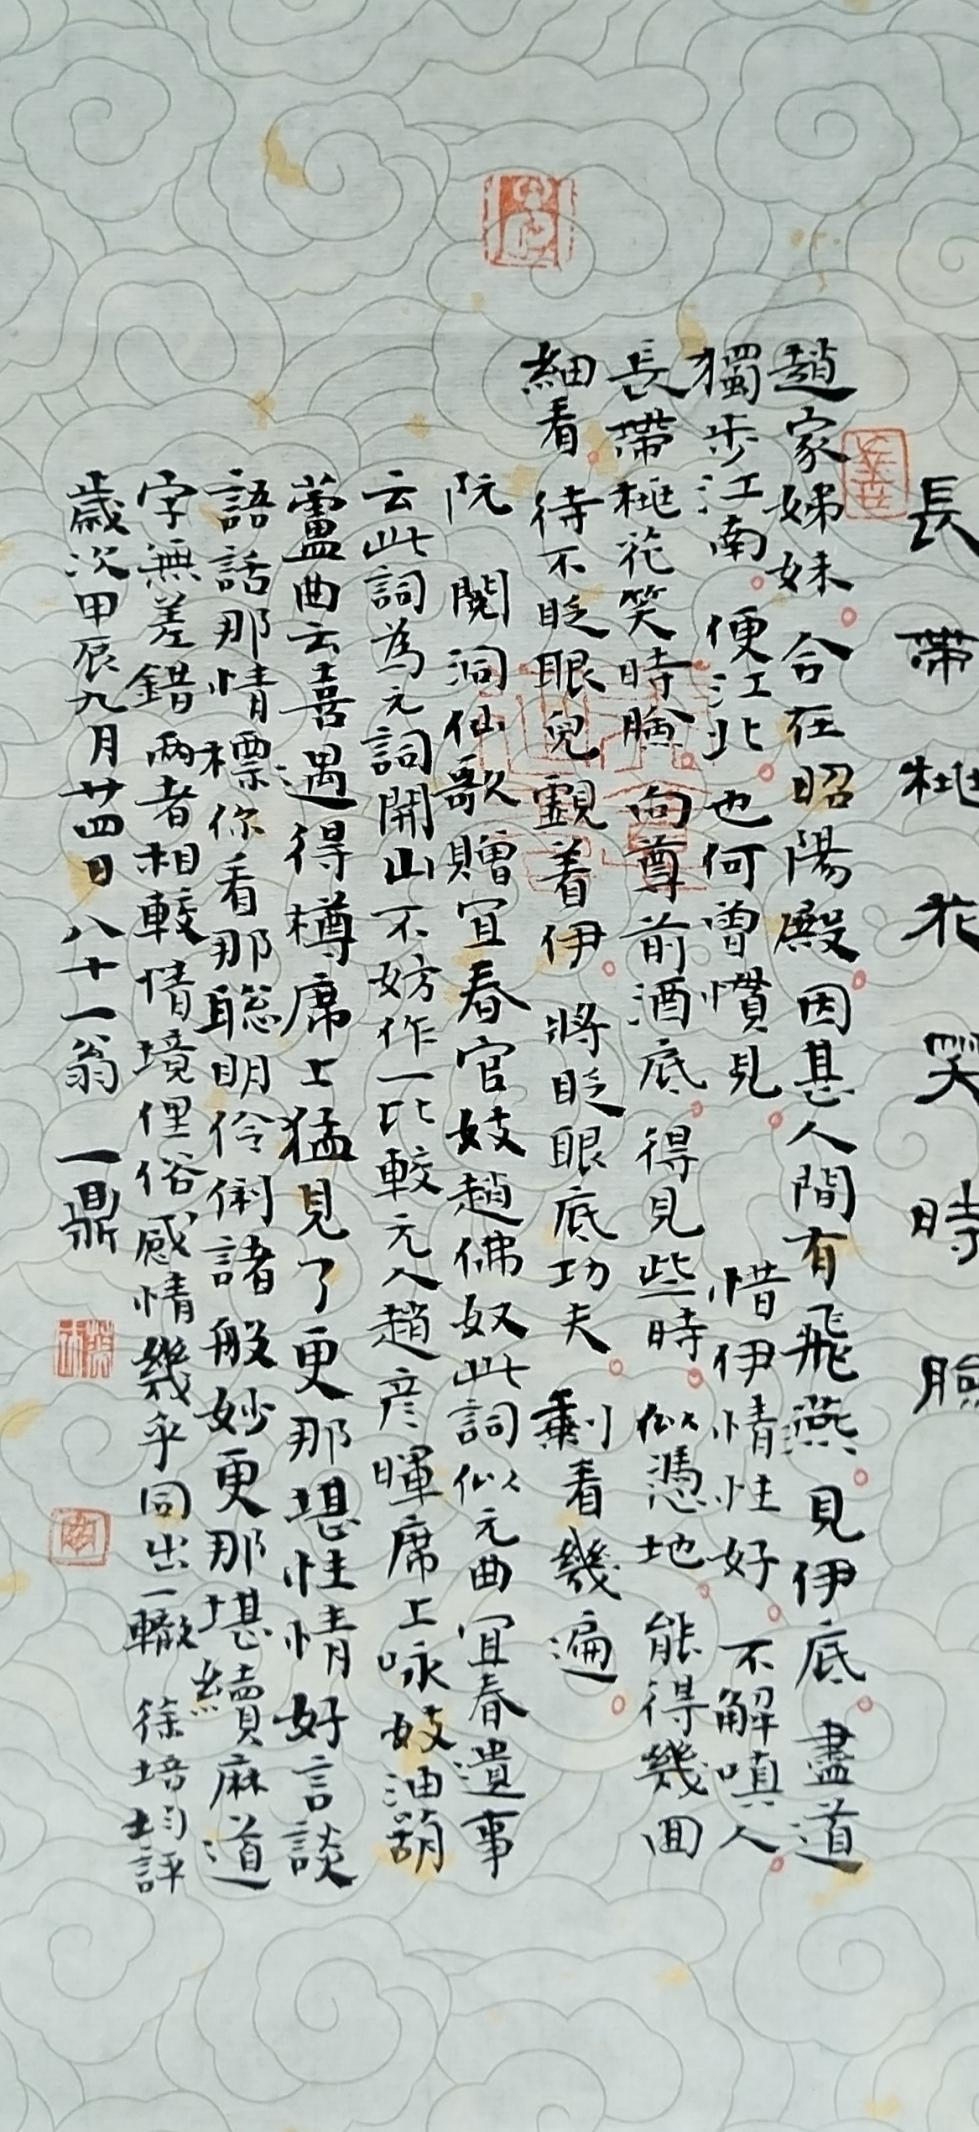 長帶桃花笑時臉
趙家姊妹合在昭陽殿因甚人間有飛燕見伊底盡道
獨步江南便江北也何曾慣見惜伊情性好不解嗔人
長帶桃花笑時臉向尊前酒底得見些時似憑地能得幾回
細看待不眨眼兒覷着伊將眨眼底功夫剩看幾遍
阮閱洞仙歌贈宜春官妓趙佛奴此詞似元曲宜春遺事
云此詞為元詞開山不妨作一比較元人趙彦暉席上咏妓油葫
蘆曲云喜遇得樽席上猛見了更那堪性情好言談
語話那情標你看那聡明伶俐諸般妙更那堪續麻道
字無差錯兩者相較情境俚俗感情幾乎同出一轍徐培均評
歲次甲辰九月廿四日八十一翁一鼎